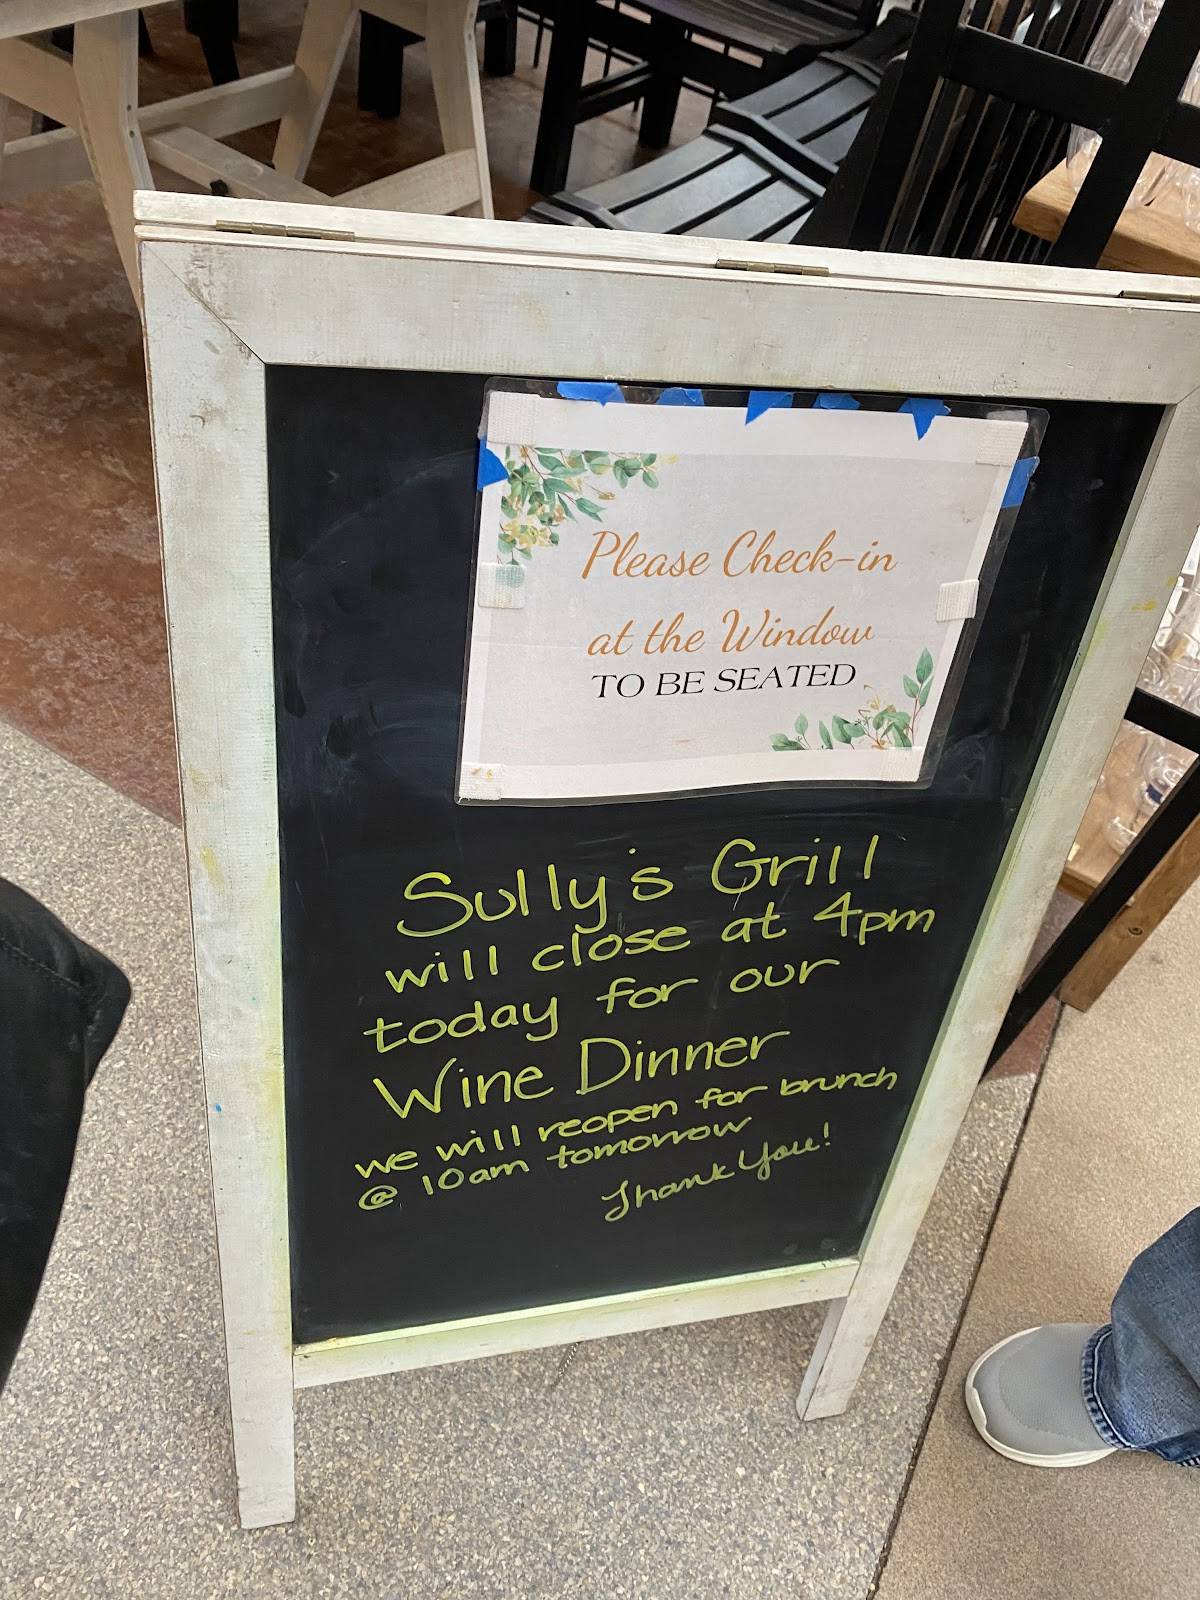 Please Check-in
at the Window
TO BE SEATED
Sully's Grill
will close at 4pm
today for our
Wine Dinner
we will reopen for brunch
@ 10am tomorrow
Thank You!